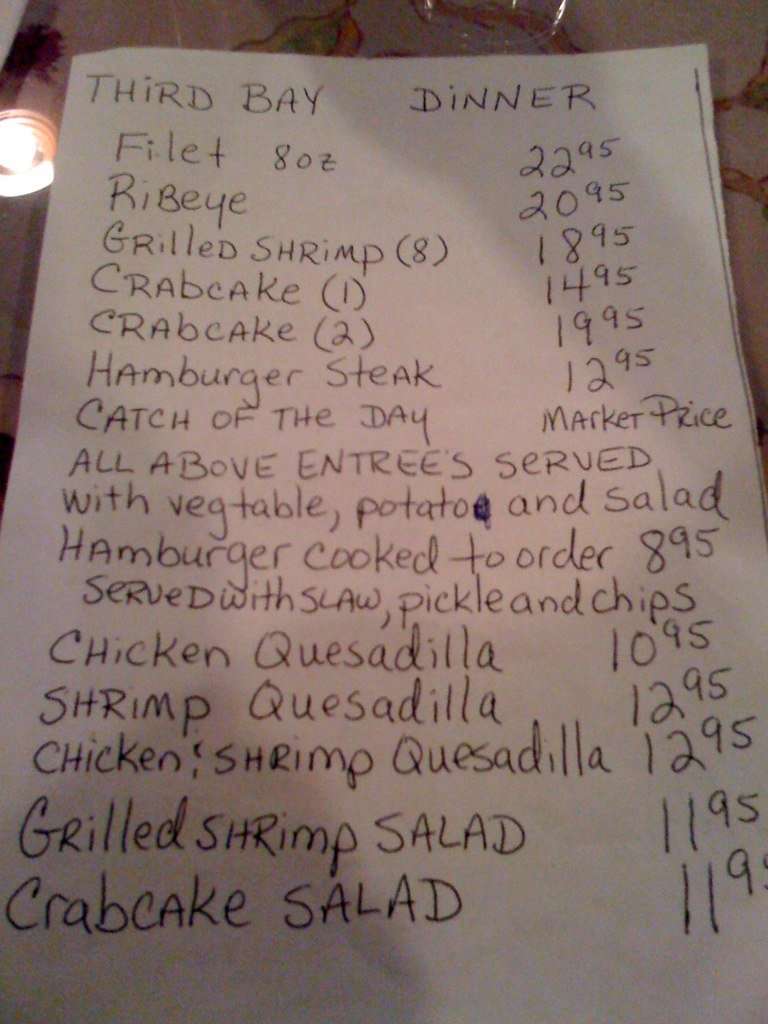 THIRD BAY DINNER
Filet 8oz 22 95
RiBeye 20 95
GRilleD SHRimp (8) 18 95
CRAbCAKe (1) 14 95
CRAbCAKe (2) 19 95
HAmburger SteAK 12 95
CATCH OF THE DAY MArket Price
ALL ABOVE ENTREE'S SERVED
with vegtable, potato and salad
HAmburger cooked to order 8 95
SERVED with SLAW, pickle and chips
CHicken Quesadilla 10 95
SHRimp Quesadilla 12 95
CHicken & SHRimp Quesadilla 12 95
GRilled SHRimp SALAD 11 95
CrabCAKe SALAD 11 9